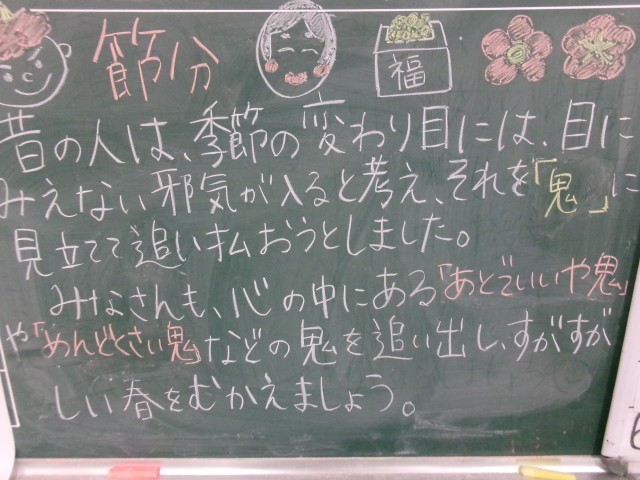 節分
福
昔の人は、季節の変わり目には、目に
みえない邪気が入ると考え、それを「鬼」に
見立てて追い払おうとしました。
みなさんも、心の中にある「あとでいいや鬼」
や「めんどくさい鬼」などの鬼を追い出し、すがすが
しい春をむかえましょう。